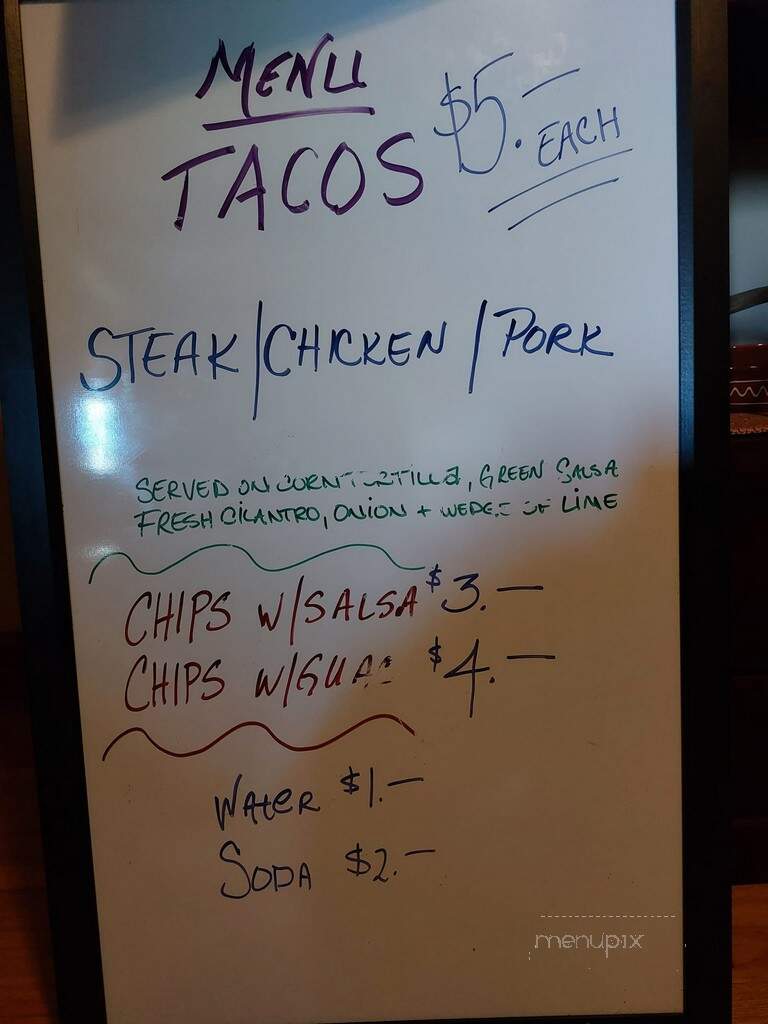 MENU
TACOS $5.— EACH
STEAK/CHICKEN/PORK
SERVED ON CORN TORTILLA, GREEN SALSA
FRESH CILANTRO, ONION + WEDGE OF LIME
CHIPS W/SALSA $3.—
CHIPS W/GUAC $4.—
WATER $1.—
SODA $2.—
menupix